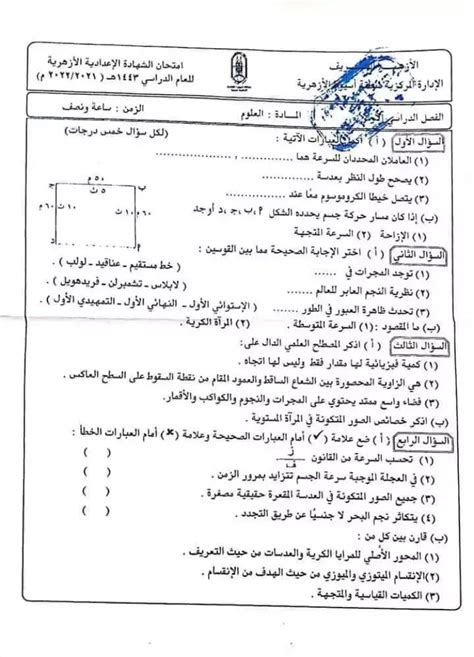 الأزهر الشريف
الإدارة المركزية لمنطقة أسيوط الأزهرية
امتحان الشهادة الإعدادية الأزهرية
للعام الدراسي ١٤٤٣هـ ( ٢٠٢١/ ٢٠٢٢ م)
الفصل الدراسي
المــادة : العلوم
الزمن : ساعة ونصف
السؤال الأول ( أ ) أكمل العبارات الآتية :
(لكل سؤال خمس درجات)
(١) العاملان المحددان للسرعة هما .............. , ..............
(٢) يصحح طول النظر بعدسة ..............
(٣) يتصل خيطا الكروموسوم معًا عند ..............
(ب) إذا كان مسار حركة جسم يحدده الشكل أ , ب , ج , د أوجد
(١) الإزاحة (٢) السرعة المتجهة
٥٠ م
٥ ث
ج
ب
٦٠ م
١٠ ث
١٠ ث
٦٠ م
د
أ
السؤال الثاني ( أ ) اختر الإجابة الصحيحة مما بين القوسين :
(١) توجد المجرات في ......
( خط مستقيم ـ عناقيد ـ لولب )
(٢) نظرية النجم العابر للعالم ......
( لابلاس ـ تشمبرلن ـ فريدهويل )
(٣) تحدث ظاهرة العبور في الطور ......
( الإستوائي الأول ـ النهائي الأول ـ التمهيدي الأول )
(ب) ما المقصود : (١) السرعة المتوسطة . (٢) المرآة الكرية .
السؤال الثالث ( أ ) اذكر المصطلح العلمي الدال على:
(١) كمية فيزيائية لها مقدار فقط وليس لها اتجاه .
(٢) هي الزاوية المحصورة بين الشعاع الساقط والعمود المقام من نقطة السقوط على السطح العاكس .
(٣) فضاء واسع ممتد يحتوي على المجرات والنجوم والكواكب والأقمار.
(ب) اذكر خصائص الصور المتكونة في المرآة المستوية .
السؤال الرابع ( أ ) ضع علامة (✓) أمام العبارات الصحيحة وعلامة (✗) أمام العبارات الخطأ :
(١) تحسب السرعة من القانون ز/ف ( )
(٢) في العجلة الموجبة سرعة الجسم تتزايد بمرور الزمن . ( )
(٣) جميع الصور المتكونة في العدسة المقعرة حقيقية مصغرة . ( )
(٤) يتكاثر نجم البحر لا جنسيًا عن طريق التجدد . ( )
(ب) قارن بين كل من :
(١) المحور الأصلي للمرايا الكرية والعدسات من حيث التعريف .
(٢) الإنقسام الميتوزي والميوزي من حيث الهدف من الإنقسام .
(٣) الكميات القياسية والمتجهة .